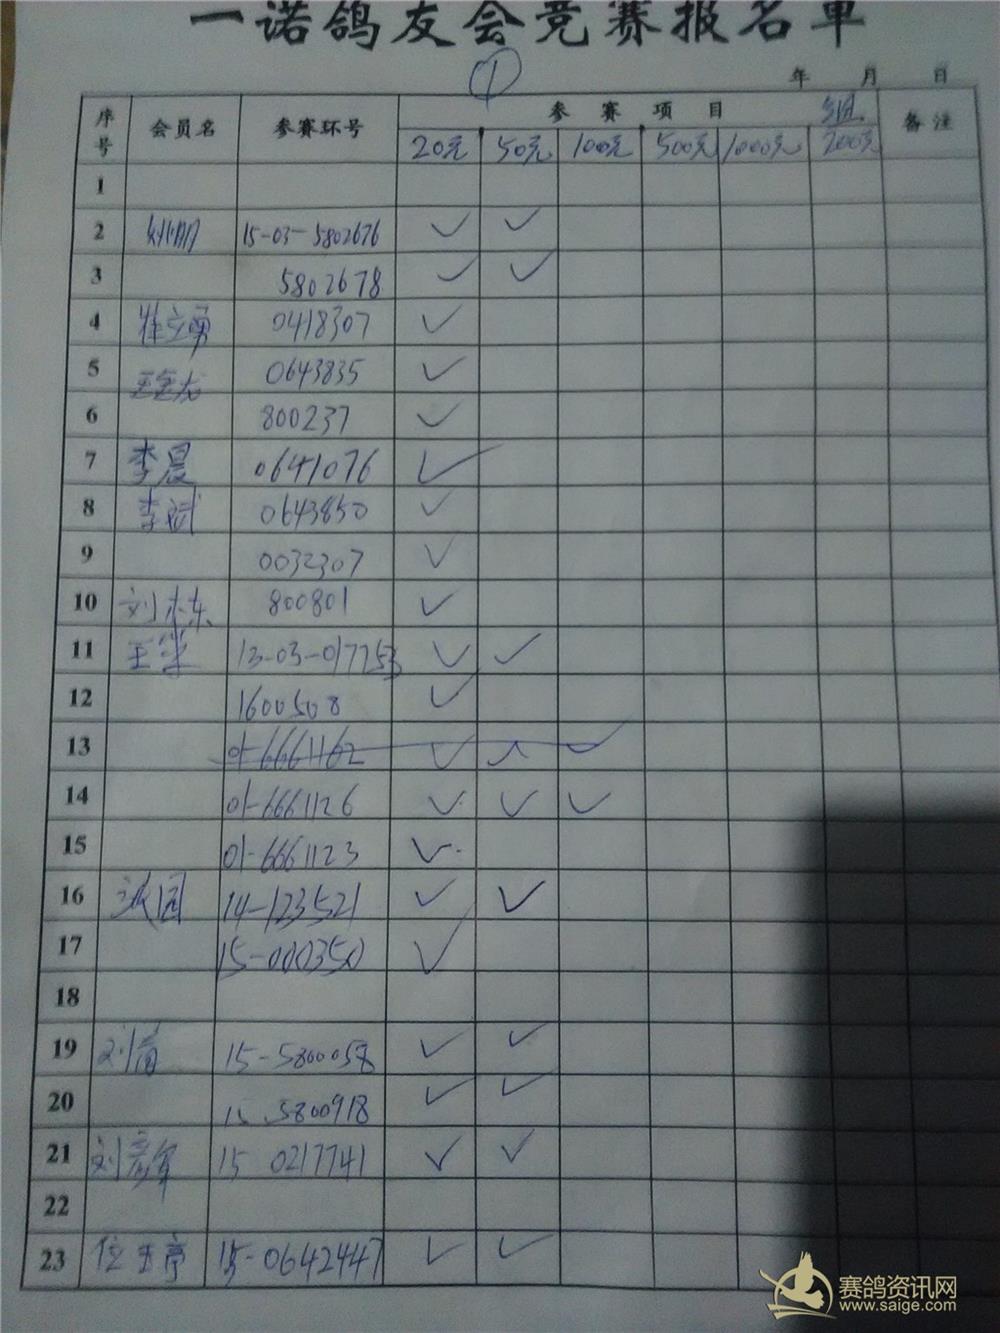 一诺鸽友会竞赛报名单
①
年 月 日
序号 会员名 参赛环号 参赛项目 备注
20元 50元 100元 500元 1000元 200元
1
2 15-03-5802676 ✓ ✓
3 5802678 ✓ ✓
4 0418307 ✓
5 0643835 ✓
6 800237 ✓
7 李晨 0641076 ✓
8 李斌 0643850 ✓
9 0032307 ✓
10 刘栋 800801 ✓
11 ✓ ✓
12 1600508 ✓
13 01-6661162 ✓ ✓ ✓
14 01-6661126 ✓ ✓ ✓
15 01-6661123 ✓
16 14-123521 ✓ ✓
17 15-000350 ✓
18
19 15-5800058 ✓ ✓
20 15 5800918 ✓ ✓
21 15 0217741 ✓ ✓
22
23 15-0642447 ✓ ✓
赛鸽资讯网
www.saige.com